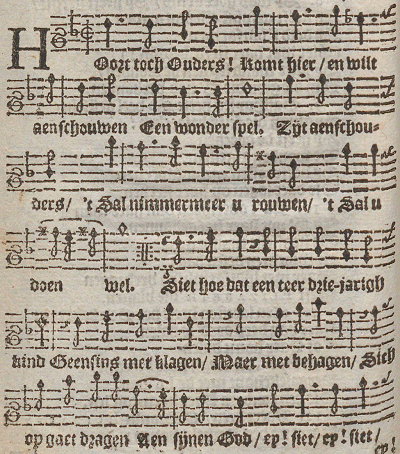 Hoort toch Ouders! Komt hier/ en wilt
aenschouwen Een wonder spel. Zijt aenschou-
ders/ 't Sal nimmermeer u rouwen/ 't Sal u
doen wel. Siet hoe dat een teer drie-jarigh
kind Geensins met klagen/ Maer met behagen/ Sich
op gaet dragen Aen sijnen God/ ey! siet/ ey! siet/
ey!